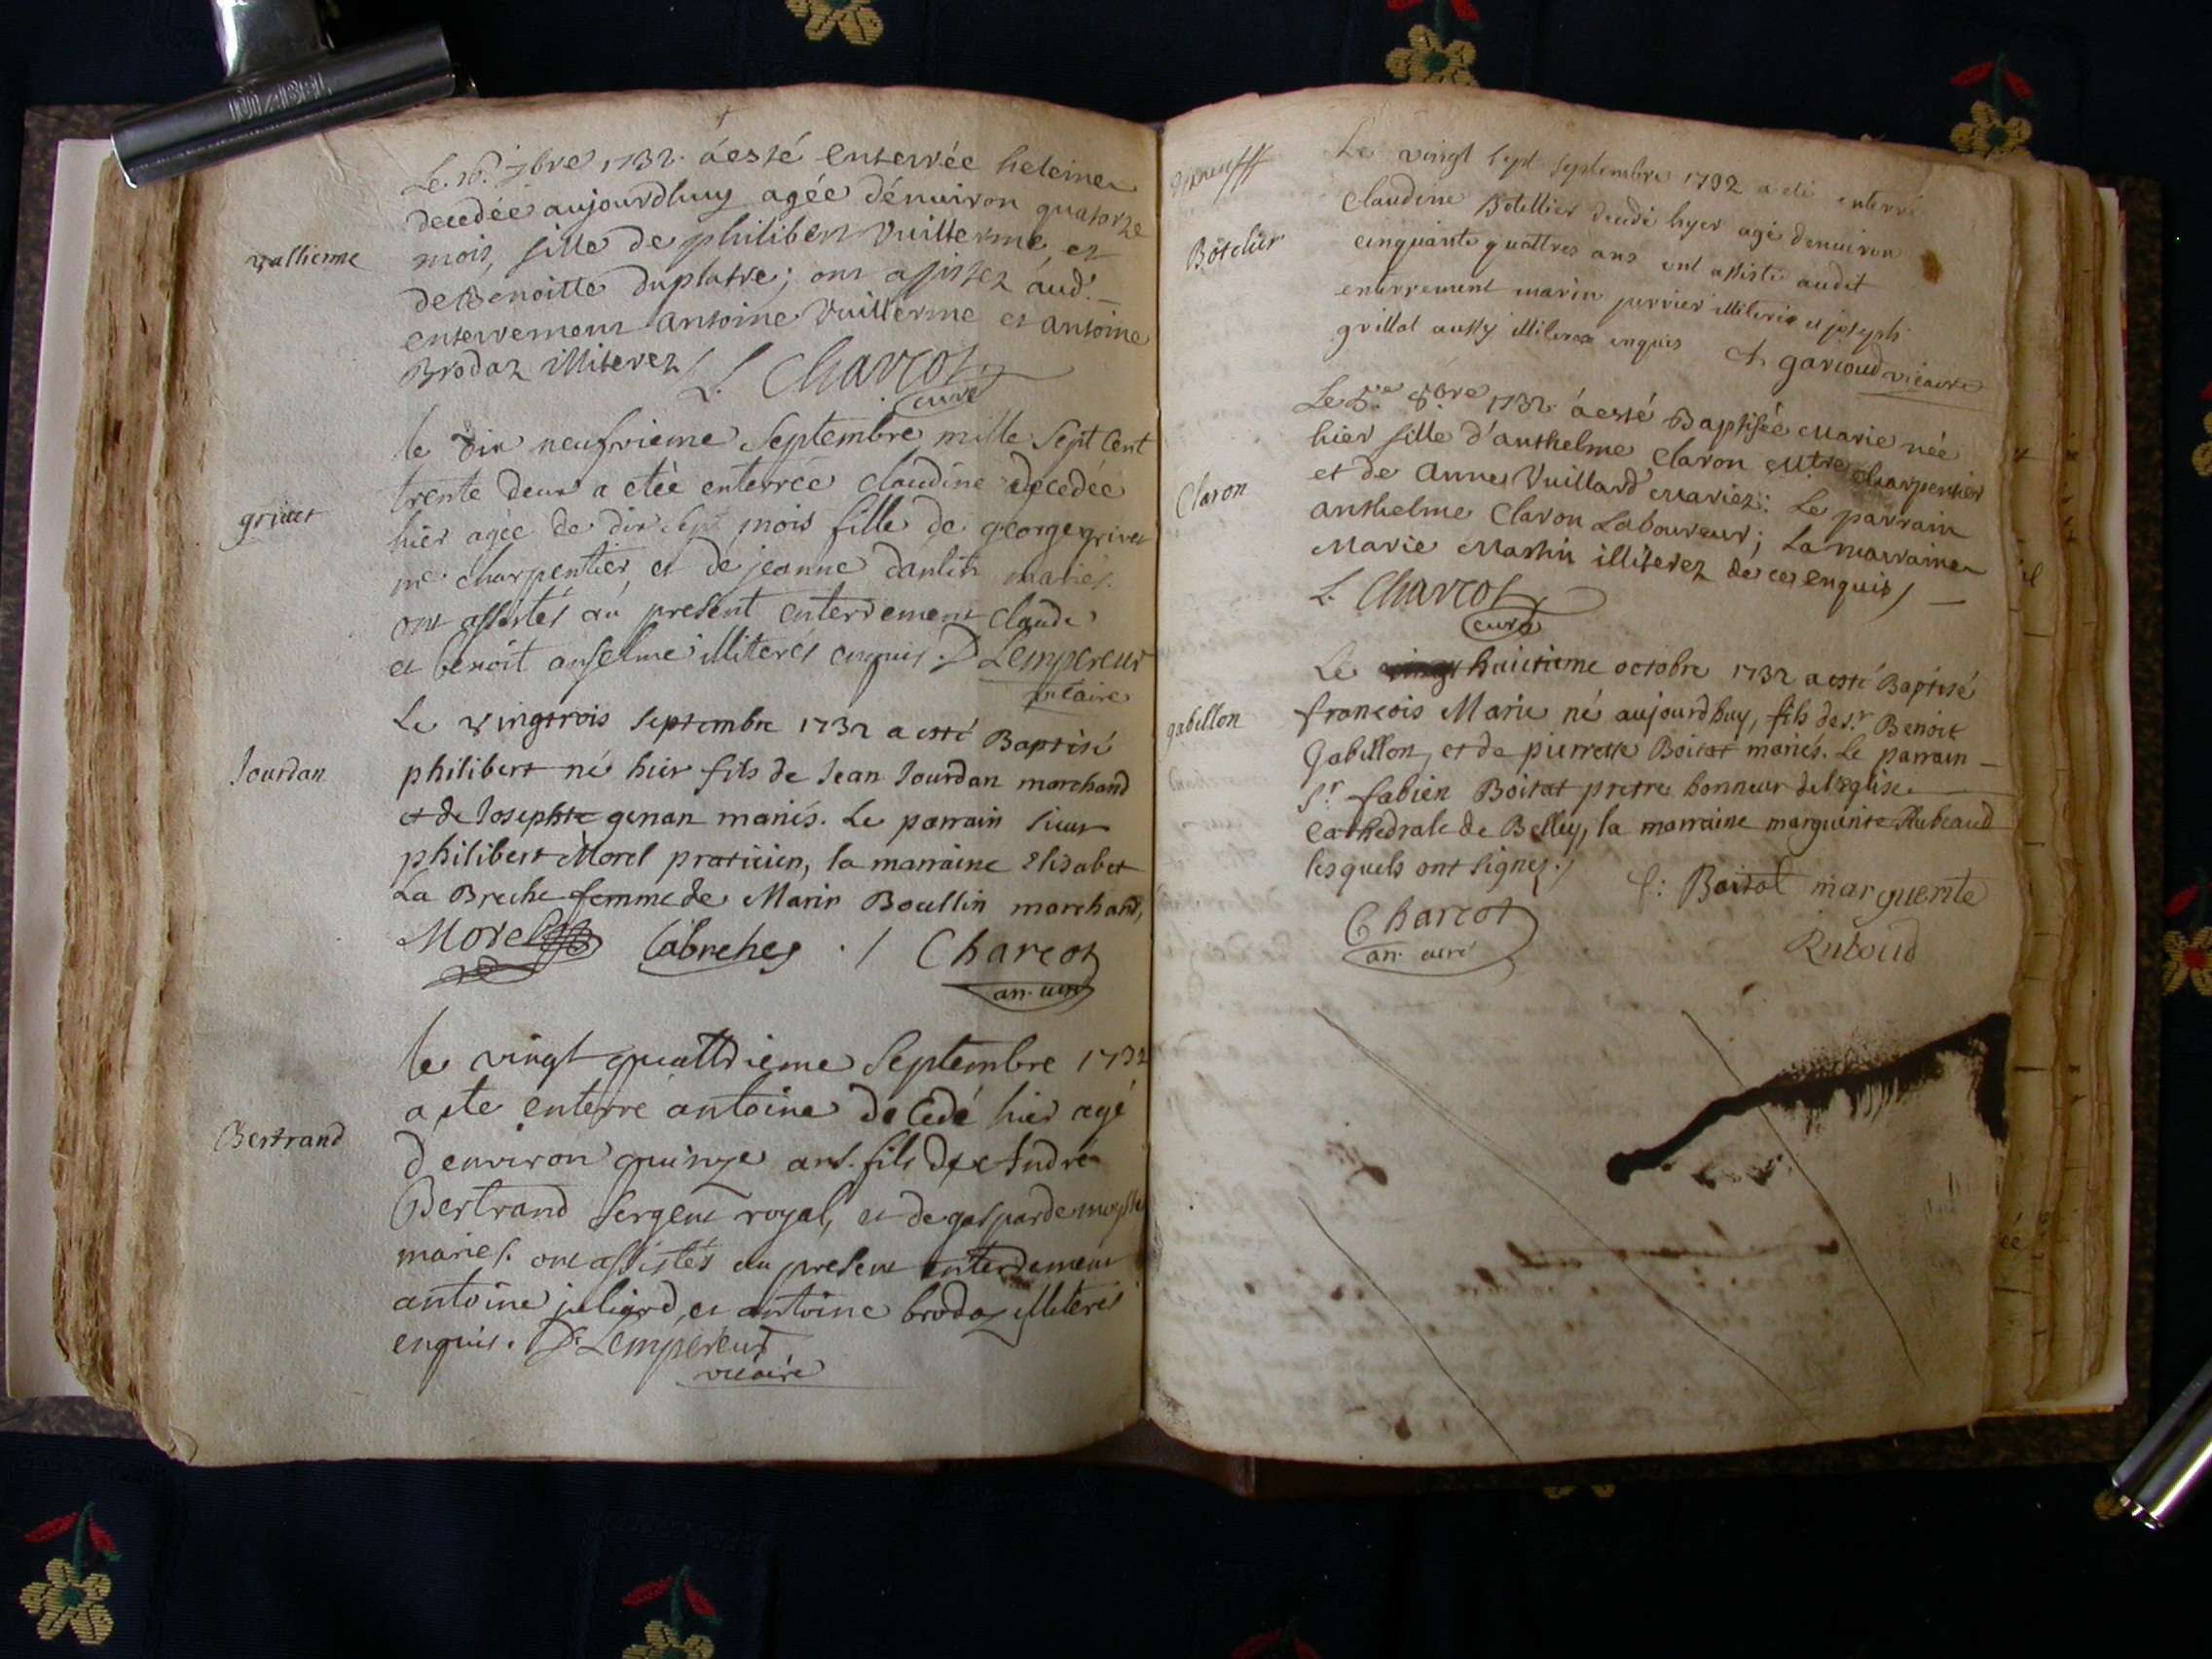 Le 16.e 7bre 1732. à esté enterrée heleine
decedée aujourdhuy agée dénuiron quatorze
vullierme
mois, fille de philibert Vuillerme, et
de Benoitte Duplatre; ont assistez áud.
enterrement antoine Vuillerme et antoine
Brodaz illiterez / L. Charcot
curé
le dix neufvieme Septembre mille Sept Cent
trente deux a etée enterrée claudine decedée
grivet
hier agée de dix Sept mois fille de george grivet
me charpentier, et de jeanne dantin mariés.
ont assistés au present enterrement claude
et benoit anselme illiterés enquis. D Lempereur
vicaire
Le vingtrois Septembre 1732 a esté Baptisé
Jourdan
philibert né hier fils de Jean Jourdan marchand
et de Josephte genan mariés. Le parrain sieur
philibert Morel praticien, la marraine Elisabet
La Breche femme de Marin Boullin marchand,
Morel Labreches ./ Charcot
an. curé
le vingt quattrieme Septembre 1732
a ete enterré antoine decedé hier agé
Bertrand
d'environ quinze ans. fils de Andre
Bertrand Sergent royal, et de gasparde
mariés. ont assistés au present enterrement
antoine juliard, et antoine brodaz illiterés
enquis. D. Lempereur
vicaire
Le vingt sept Septembre 1732 a eté enterré
Botelier
Claudine Botellier decedé hyer agé denuiron
cinquante quattres ans ont assisté audit
enterrement marin perrier illiteré et joseph
grillot aussy illiteré enquis garioud vicaire
Le 5.e 8bre 1732. à esté Baptisée Marie née
hier fille d'anthelme Claron Mtre Charpentier
Claron
et de Anne Vuillard Mariez: Le parrain
anthelme Claron Laboureur; La marraine
Marie Martin illiterez de ce enquis /
L. Charcot
curé
Le huitieme octobre 1732 a esté Baptisé
gabillon
francois Marie né aujourdhuy, fils de Sr. Benoit
Gabillon, et de pierrette Boitat mariés. Le parrain
Sr. fabien Boitat pretre honneur de l'Eglise
Cathedrale de Belley, la marraine marguerite Rubeaud
lesquels ont signez./
f: Boitat marguerite
Charcot
an. curé
Ruboud